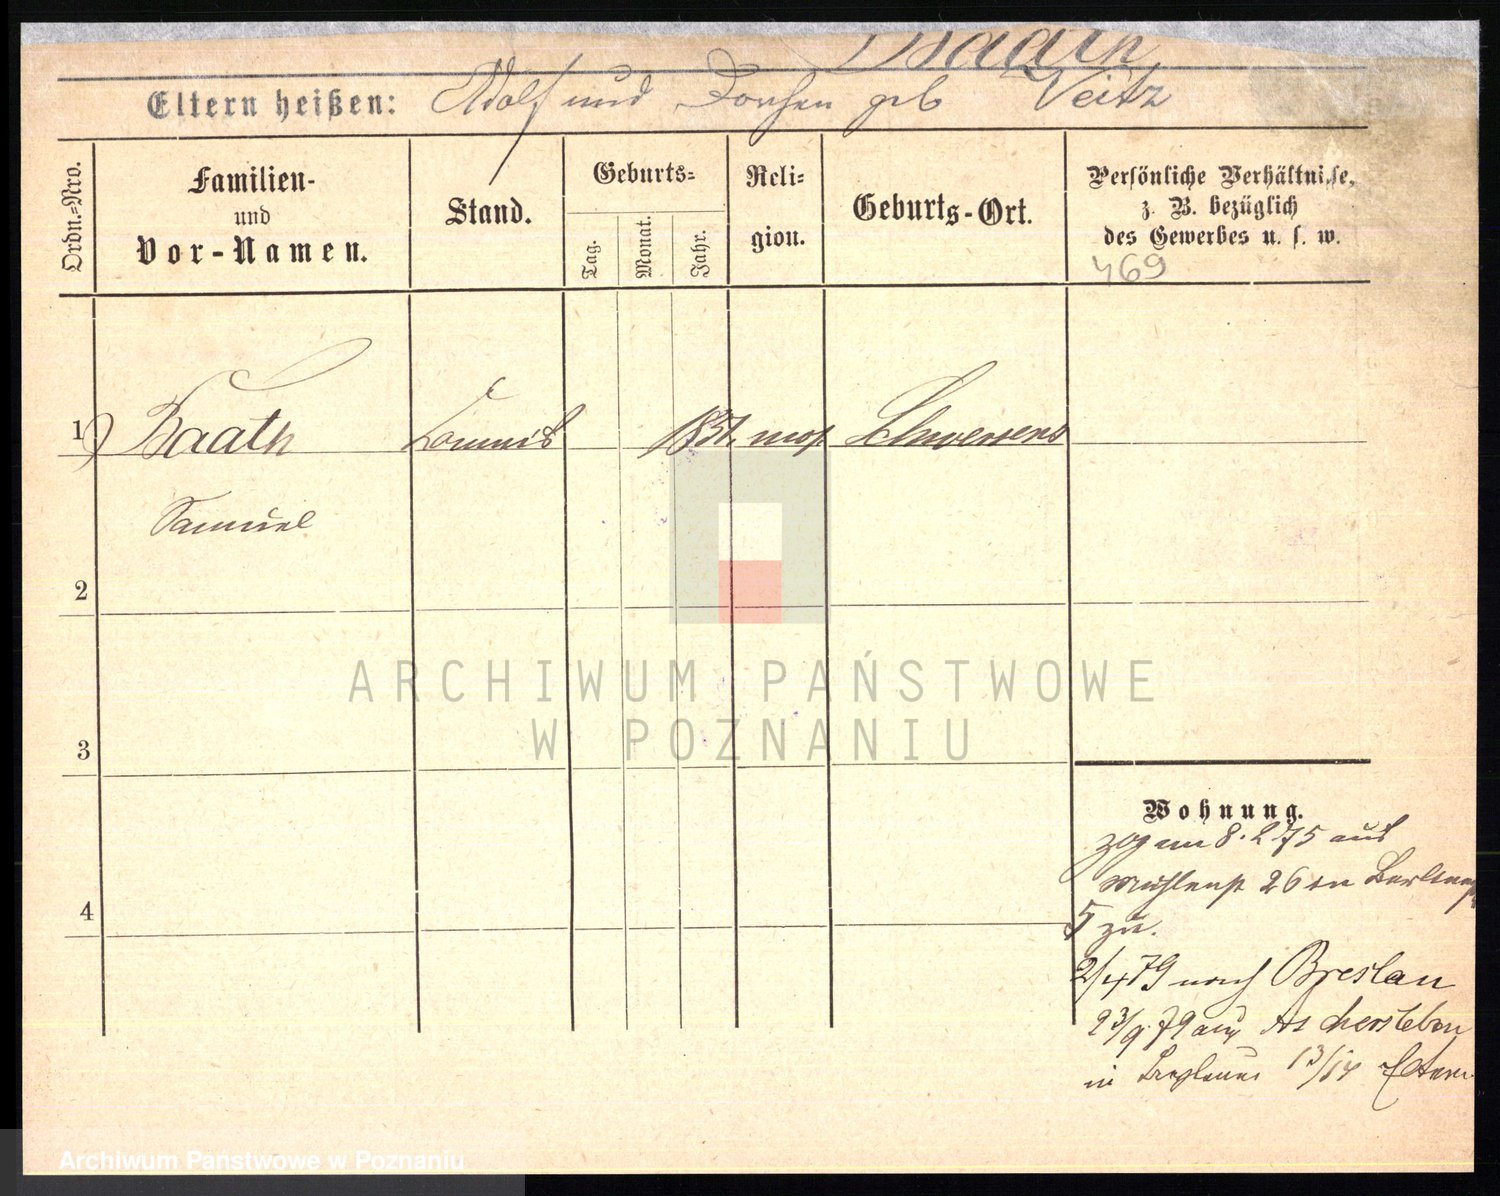 Baath
Eltern heißen: Adolf und Dorchen geb Veitz
Ordn.-Nro.
Familien-
und
Vor-Namen.
Stand.
Geburts-
Tag.
Monat.
Jahr.
Reli-
gion.
Geburts-Ort.
Persönliche Verhältnisse,
z. B. bezüglich
des Gewerbes u. s. w.
469
1 Baath Commis mos. Schwersenz
Samuel
2
3
4
Wohnung.
zog am 8. 2 75 aus
Mühlenst 26 in
5 zu.
2/4 79 nach Breslau
23/9. 79 aus Aschersleben
in 13/14 Eltern
ARCHIWUM PAŃSTWOWE
W POZNANIU
Archiwum Państwowe w Poznaniu